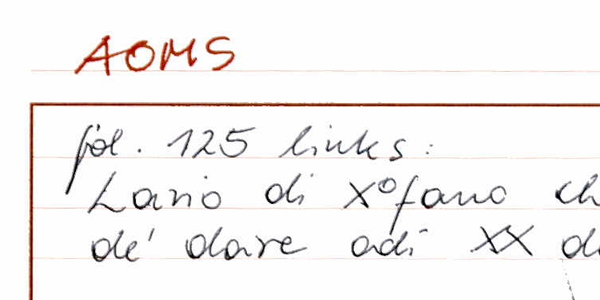 AOMS
fol. 125 links:
Lario di Xºfano ch
de' dare adi XX di